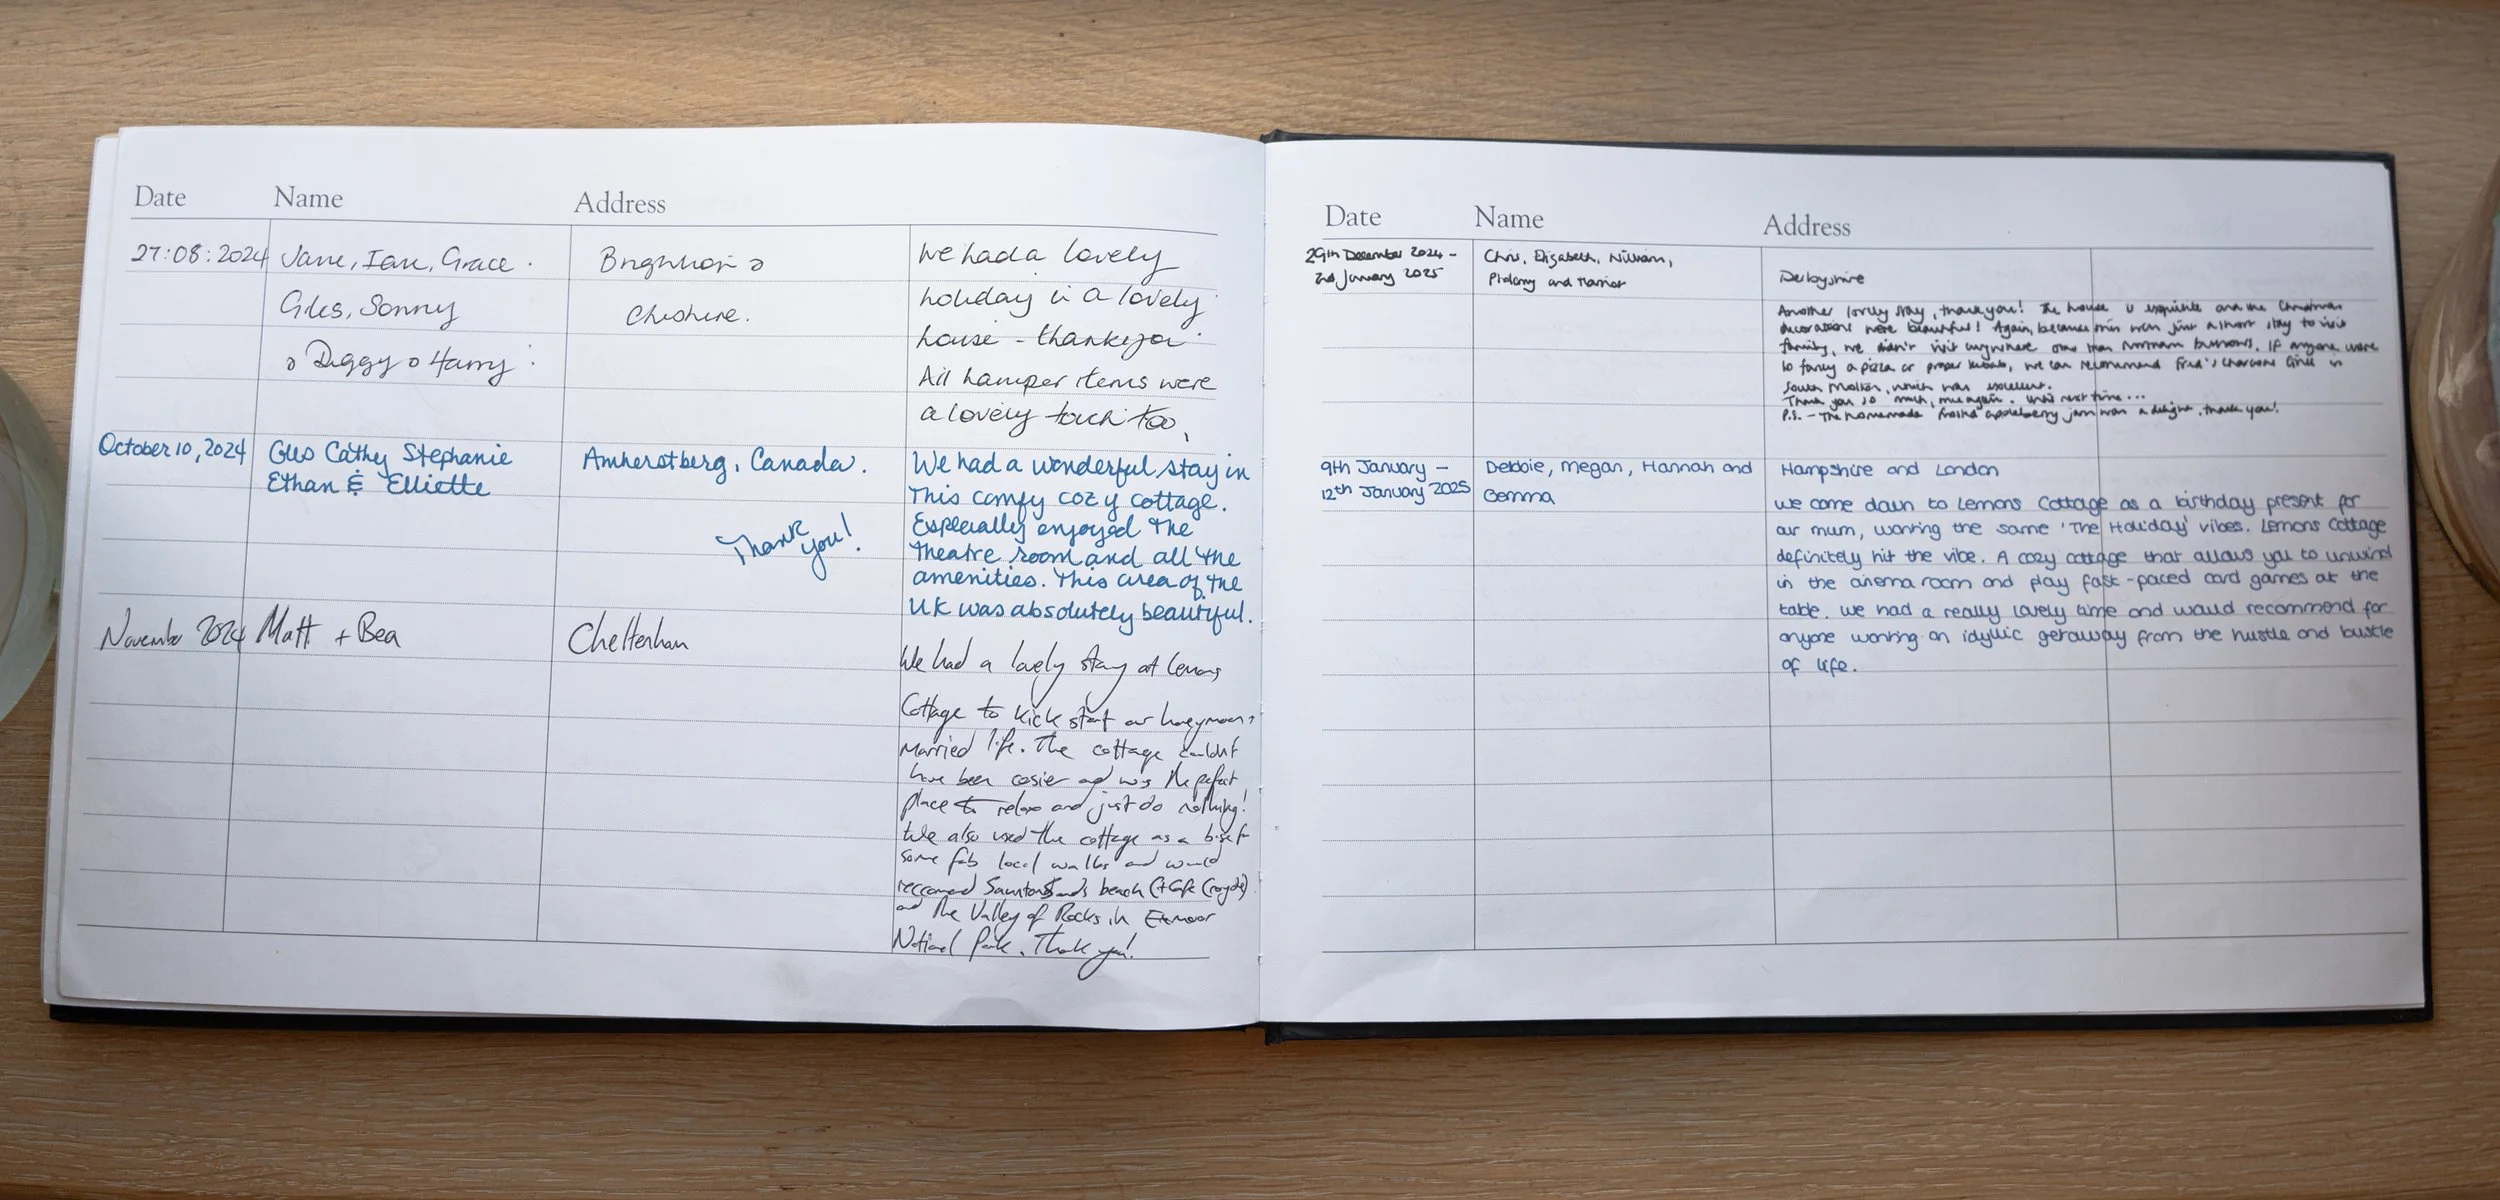 Date Name Address
27:08:2024 Jane, Ian, Grace. Brighton & We had a lovely
Giles, Sonny Cheshire. holiday in a lovely
& Diggy & Harry. house - thankyou.
All hamper items were
a lovely touch too.
October 10, 2024 Gus Cathy Stephanie Amherstberg, Canada. We had a wonderful stay in
Ethan & Elliette This comfy cozy cottage.
Thank you! Especially enjoyed the
theatre room and all the
amenities. This area of the
UK was absolutely beautiful.
November 2024 Matt + Bea Cheltenham We had a lovely stay at Lemons
Cottage to kick start our honeymoon,
married life. The cottage couldn't
have been cosier and was the perfect
place to relax and just do nothing!
We also used the cottage as a base for
some fab local walks and would
reccomend Saunton Sands beach (+ Cafe Croyde)
and The Valley of Rocks in Exmoor
National Park. Thank you!
Date Name Address
29th December 2024 - Chris, Elizabeth, William,
2nd January 2025 and Derbyshire
Another lovely stay, thank you! The house is exquisite and the Christmas
decorations were beautiful! Again, because this was just a short stay to visit
family, we didn't visit anywhere other than burrows. If anyone were
to fancy a pizza or proper kebab, we can recommend Fred's Charcoal Grill in
South Molton, which was excellent.
Thank you so much, once again. Until next time...
P.S. - The homemade jam was a delight, thank you!
9th January - Debbie, Megan, Hannah and Hampshire and London
12th January 2025 Gemma
We came down to Lemons Cottage as a birthday present for
our mum, wanting the same 'The Holiday' vibes. Lemons Cottage
definitely hit the vibe. A cozy cottage that allows you to unwind
in the cinema room and play fast-paced card games at the
table. We had a really lovely time and would recommend for
anyone wanting an idyllic getaway from the hustle and bustle
of life.